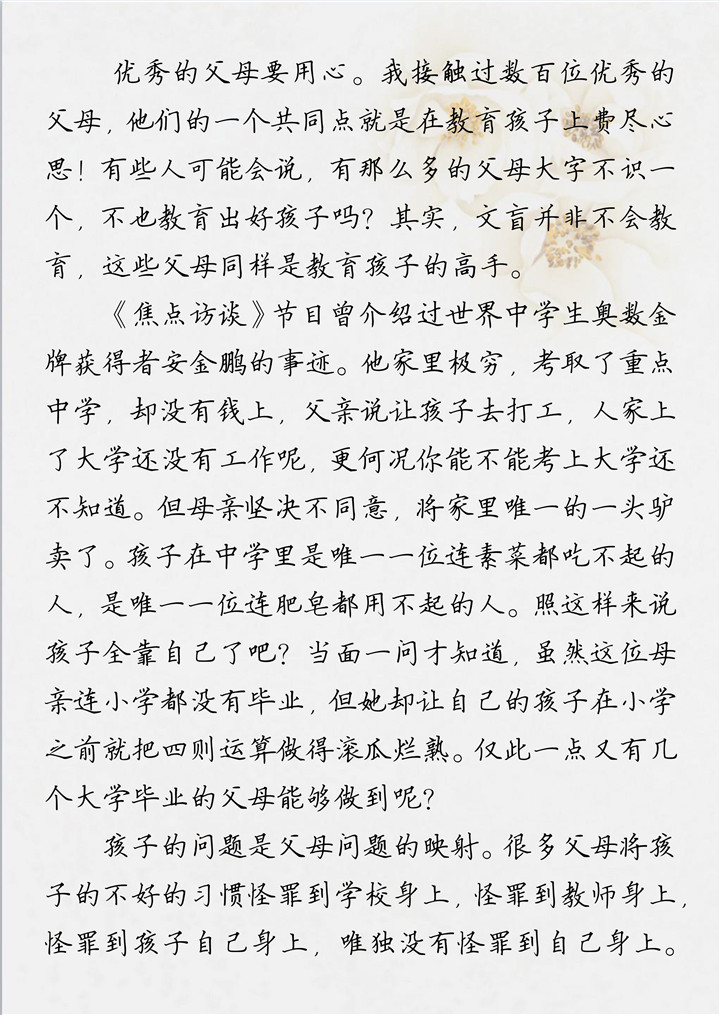 优秀的父母要用心。我接触过数百位优秀的
父母，他们的一个共同点就是在教育孩子上费尽心
思！有些人可能会说，有那么多的父母大字不识一
个，不也教育出好孩子吗？其实，文盲并非不会教
育，这些父母同样是教育孩子的高手。
《焦点访谈》节目曾介绍过世界中学生奥数金
牌获得者安金鹏的事迹。他家里极穷，考取了重点
中学，却没有钱上，父亲说让孩子去打工，人家上
了大学还没有工作呢，更何况你能不能考上大学还
不知道。但母亲坚决不同意，将家里唯一的一头驴
卖了。孩子在中学里是唯一一位连素菜都吃不起的
人，是唯一一位连肥皂都用不起的人。照这样来说
孩子全靠自己了吧？当面一问才知道，虽然这位母
亲连小学都没有毕业，但她却让自己的孩子在小学
之前就把四则运算做得滚瓜烂熟。仅此一点又有几
个大学毕业的父母能够做到呢？
孩子的问题是父母问题的映射。很多父母将孩
子的不好的习惯怪罪到学校身上，怪罪到教师身上，
怪罪到孩子自己身上，唯独没有怪罪到自己身上。